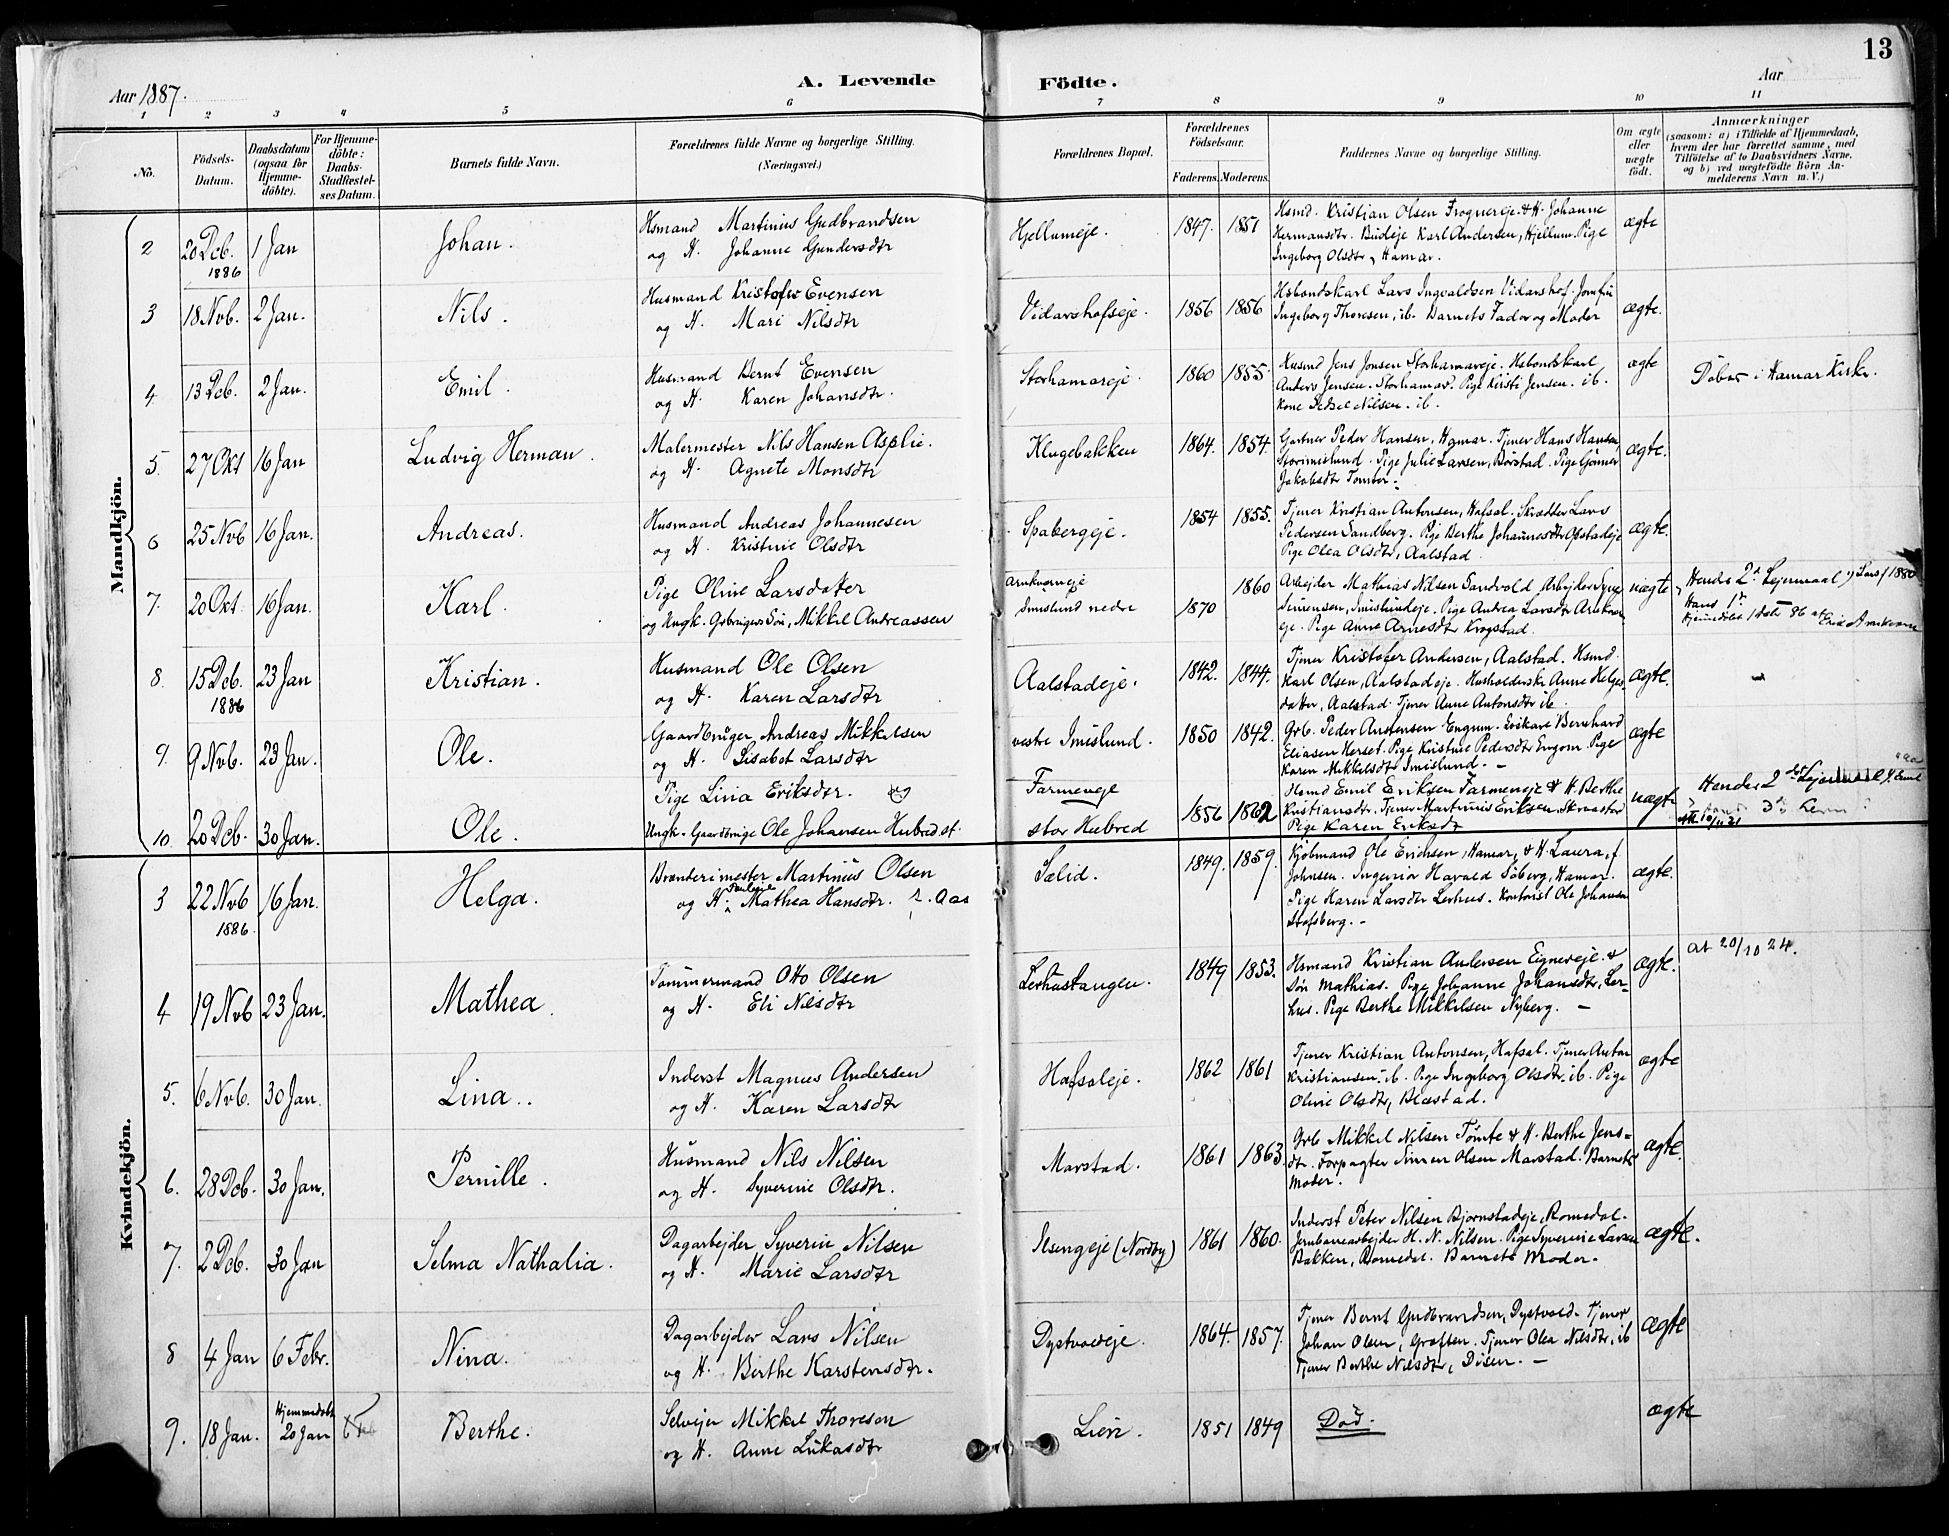 13
A. Levende Födte.
Aar 1887.
Aar
1 2 3 4 5 6 7 8 9 10 11
No.
Födsels-Datum.
Daabsdatum (ogsaa for Hjemme-döbte).
For Hjemme-döbte: Daabs-Stadfæstel-ses Datum.
Barnets fulde Navn.
Forældrenes fulde Navne og borgerlige Stilling. (Næringsvei.)
Forældrenes Bopæl.
Forældrenes Födselsaar.
Faderens. Moderens.
Faddernes Navne og borgerlige Stilling.
Om ægte eller uægte födt.
Anmærkninger
(saasom: a) i Tilfælde af Hjemmedaab,
hvem der har forrettet samme, med
Tilföielse af to Daabsvidners Navne,
og b) ved uægtefödte Börn An-
melderens Navn m. V.)
Mandkjön.
2 20 Dcb. 1886 1 Jan Johan.
Hsmand Martinius Gudbrandsen
og H. Johanne Gundersdtr
Hjellumeje. 1847. 1851
Hsmd. Kristian Olsen Frognereje & H. Johanne
Hermansdtr. Budeje Karl Andersen, Hjellum. Pige
Ingeborg Olsdtr, Hamar.
ægte
3 18 Nvb. 2 Jan. Nils.
Husmand Kristofer Evensen
og H. Mari Nilsdtr
Vidarshofseje. 1856 1856
Hsbondskarl Lars Ingvaldsen Vidarshof. Jomfru
Ingeborg Thoresen, ib. Barnets Fader og Moder
ægte.
4 13 Dcb. 2 Jan. Emil.
Husmand Bernt Evensen
og H. Karen Johansdtr.
Storhamareje. 1860 1855.
Husmd Jens Jonsen Storhamareje. Hsbondskarl
Anders Jensen. Storhamar. Pige Kristi Jensen. ib.
Kone Sidsel Nilsen. ib.
ægte
Döbt i Hamar Kirke.
5. 27 Okt 16 Jan Ludvig Herman.
Malermester Nils Hansen Asplie.
og H. Agnete Monsdtr
Klugebakken 1864. 1854.
Gartner Peder Hansen, Hamar. Tjener Hans Hansen,
Storimislund. Pige Julie Larsen, Börstad. Pige Gjönner
Jakobsdtr Tomter.
ægte.
6 25 Nvb 16 Jan. Andreas.
Husmand Andreas Johannesen
og H. Kristine Olsdtr
Spabergeje. 1854 1855.
Tjener Kristian Antonsen, Hafsal. Skrædder Lars
Pedersen Sandberg. Pige Berthe Johannesdtr Opstadeje
Pige Olea Olsdtr, Aalstad.
ægte.
7. 20 Okt. 16 Jan. Karl.
Pige Oline Larsdatter
og Ungk. Gbrugers Sön, Mikkel Andreassen
Arnkverneje
Imislund nedre
1870 1860
Arbejder Mathias Nilsen Sandvold. Arbejder Syver
Simensen, Imislundeje. Pige Andrea Larsdtr Arnkvern
eje. Pige Anne Arnesdtr Krogstad.
uægte
Hendes 2det Lejermaal
Hans 1ste
8. 15 Dcb. 1886 23 Jan Kristian.
Husmand Ole Olsen
og H. Karen Larsdtr
Aalstadeje. 1842. 1844.
Tjener Kristofer Andersen, Aalstad. Hsmd
Karl Olsen, Aalstadeje. Husholderske Anne Helges
datter, Aalstad. Tjener Anne Antonsdtr ib.
ægte.
9. 9 Nvb. 23 Jan. Ole.
Gaardbruger Andreas Mikkelsen
og H. Lisabet Larsdtr
vestre Imislund. 1850 1842.
Grb. Peder Anstensen Engum. Enkare Bernhard
Eliasen Herset. Pige Kristine Pedersdtr Engom Pige
Karen Mikkelsdtr Imislund.
ægte
10. 20 Dcb. 30 Jan. Ole.
Pige Lina Eriksdtr. og
Ungk. Gaardbruge Ole Johansen Hubred st.
Farmeneje
stor Hubred
1856 1862
Hsmd Emil Eriksen Farmeneje & H. Berthe
Kristiansdtr. Tjener Martinius Eriksen,
Pige Karen Eriksdtr
uægte
Hendes 2det Lejermaal
Kvindekjön.
3 22 Nvb 1886. 16 Jan. Helga.
Brænderimester Martinius Olsen
og H. Mathea Hansdtr. f. Aas
Sælid. 1849. 1859.
Kjöbmand Ole Erichsen, Hamar, & H. Laura, f.
Johnsen. Ingeniør Harald Söberg, Hamar.
Pige Karen Larsdtr Lerhus. Kontorist Ole Johansen
Stafsberg.
ægte.
4 19 Nvb 23 Jan. Mathea.
Tömmermand Otto Olsen
og H. Eli Nilsdtr
Lerhustangen. 1849 1853.
Hsmand Kristian Andersen Eignereje. &
Sön Mathias. Pige Johanne Johansdtr, Ler-
hus. Pige Berthe Mikkelsen Nyberg.
ægte.
at 20/10 24.
5. 6 Nvb. 30 Jan. Lina.
Inderst Magnus Andersen
og H. Karen Larsdtr
Hafsaleje. 1862 1861
Tjener Kristian Antonsen, Hafsal. Tjener Anton
Kristiansen. ib. Pige Ingeborg Olsdtr. ib. Pige
Olivie Olsdtr, Blæstad.
ægte
6. 28 Dcb. 30 Jan. Pernille.
Husmand Nils Nilsen
og H. Syverine Olsdtr.
Marstad. 1861 1863
Grb Mikkel Nilsen Tömte & H. Berthe Jens-
dtr. Forpagter Simen Olsen Marstad. Barnets
Moder.
ægte.
7. 2 Dcb. 30 Jan Selma Nathalia.
Dagarbejder Syverin Nilsen
og H. Marie Larsdtr
Ilsengeje (Nordby) 1861 1860.
Inderst Peter Nilsen Bjørnstadeje, Romedal.
Jernbanearbejder H. N. Nilsen. Pige Syverine Larsen
Bakken, Romedal. Barnets Moder.
ægte.
8 4 Jan 6 Febr. Nina.
Dagarbejder Lars Nilsen
og H. Berthe Karstensdtr.
Dystvoldeje. 1864. 1857.
Tjener Bernt Gudbrandsen, Dystvold. Tjener
Johan Olsen, Grøften. Tjener Olea Nilsdtr, ib
Tjener Berthe Nilsdtr, Disen.
ægte
9. 18 Jan. Hjemmedöbt 20 Jan Berthe.
Selvejer Mikkel Thoresen
og H. Anne Lukasdtr
Lien. 1851 1849
Död.
ægte